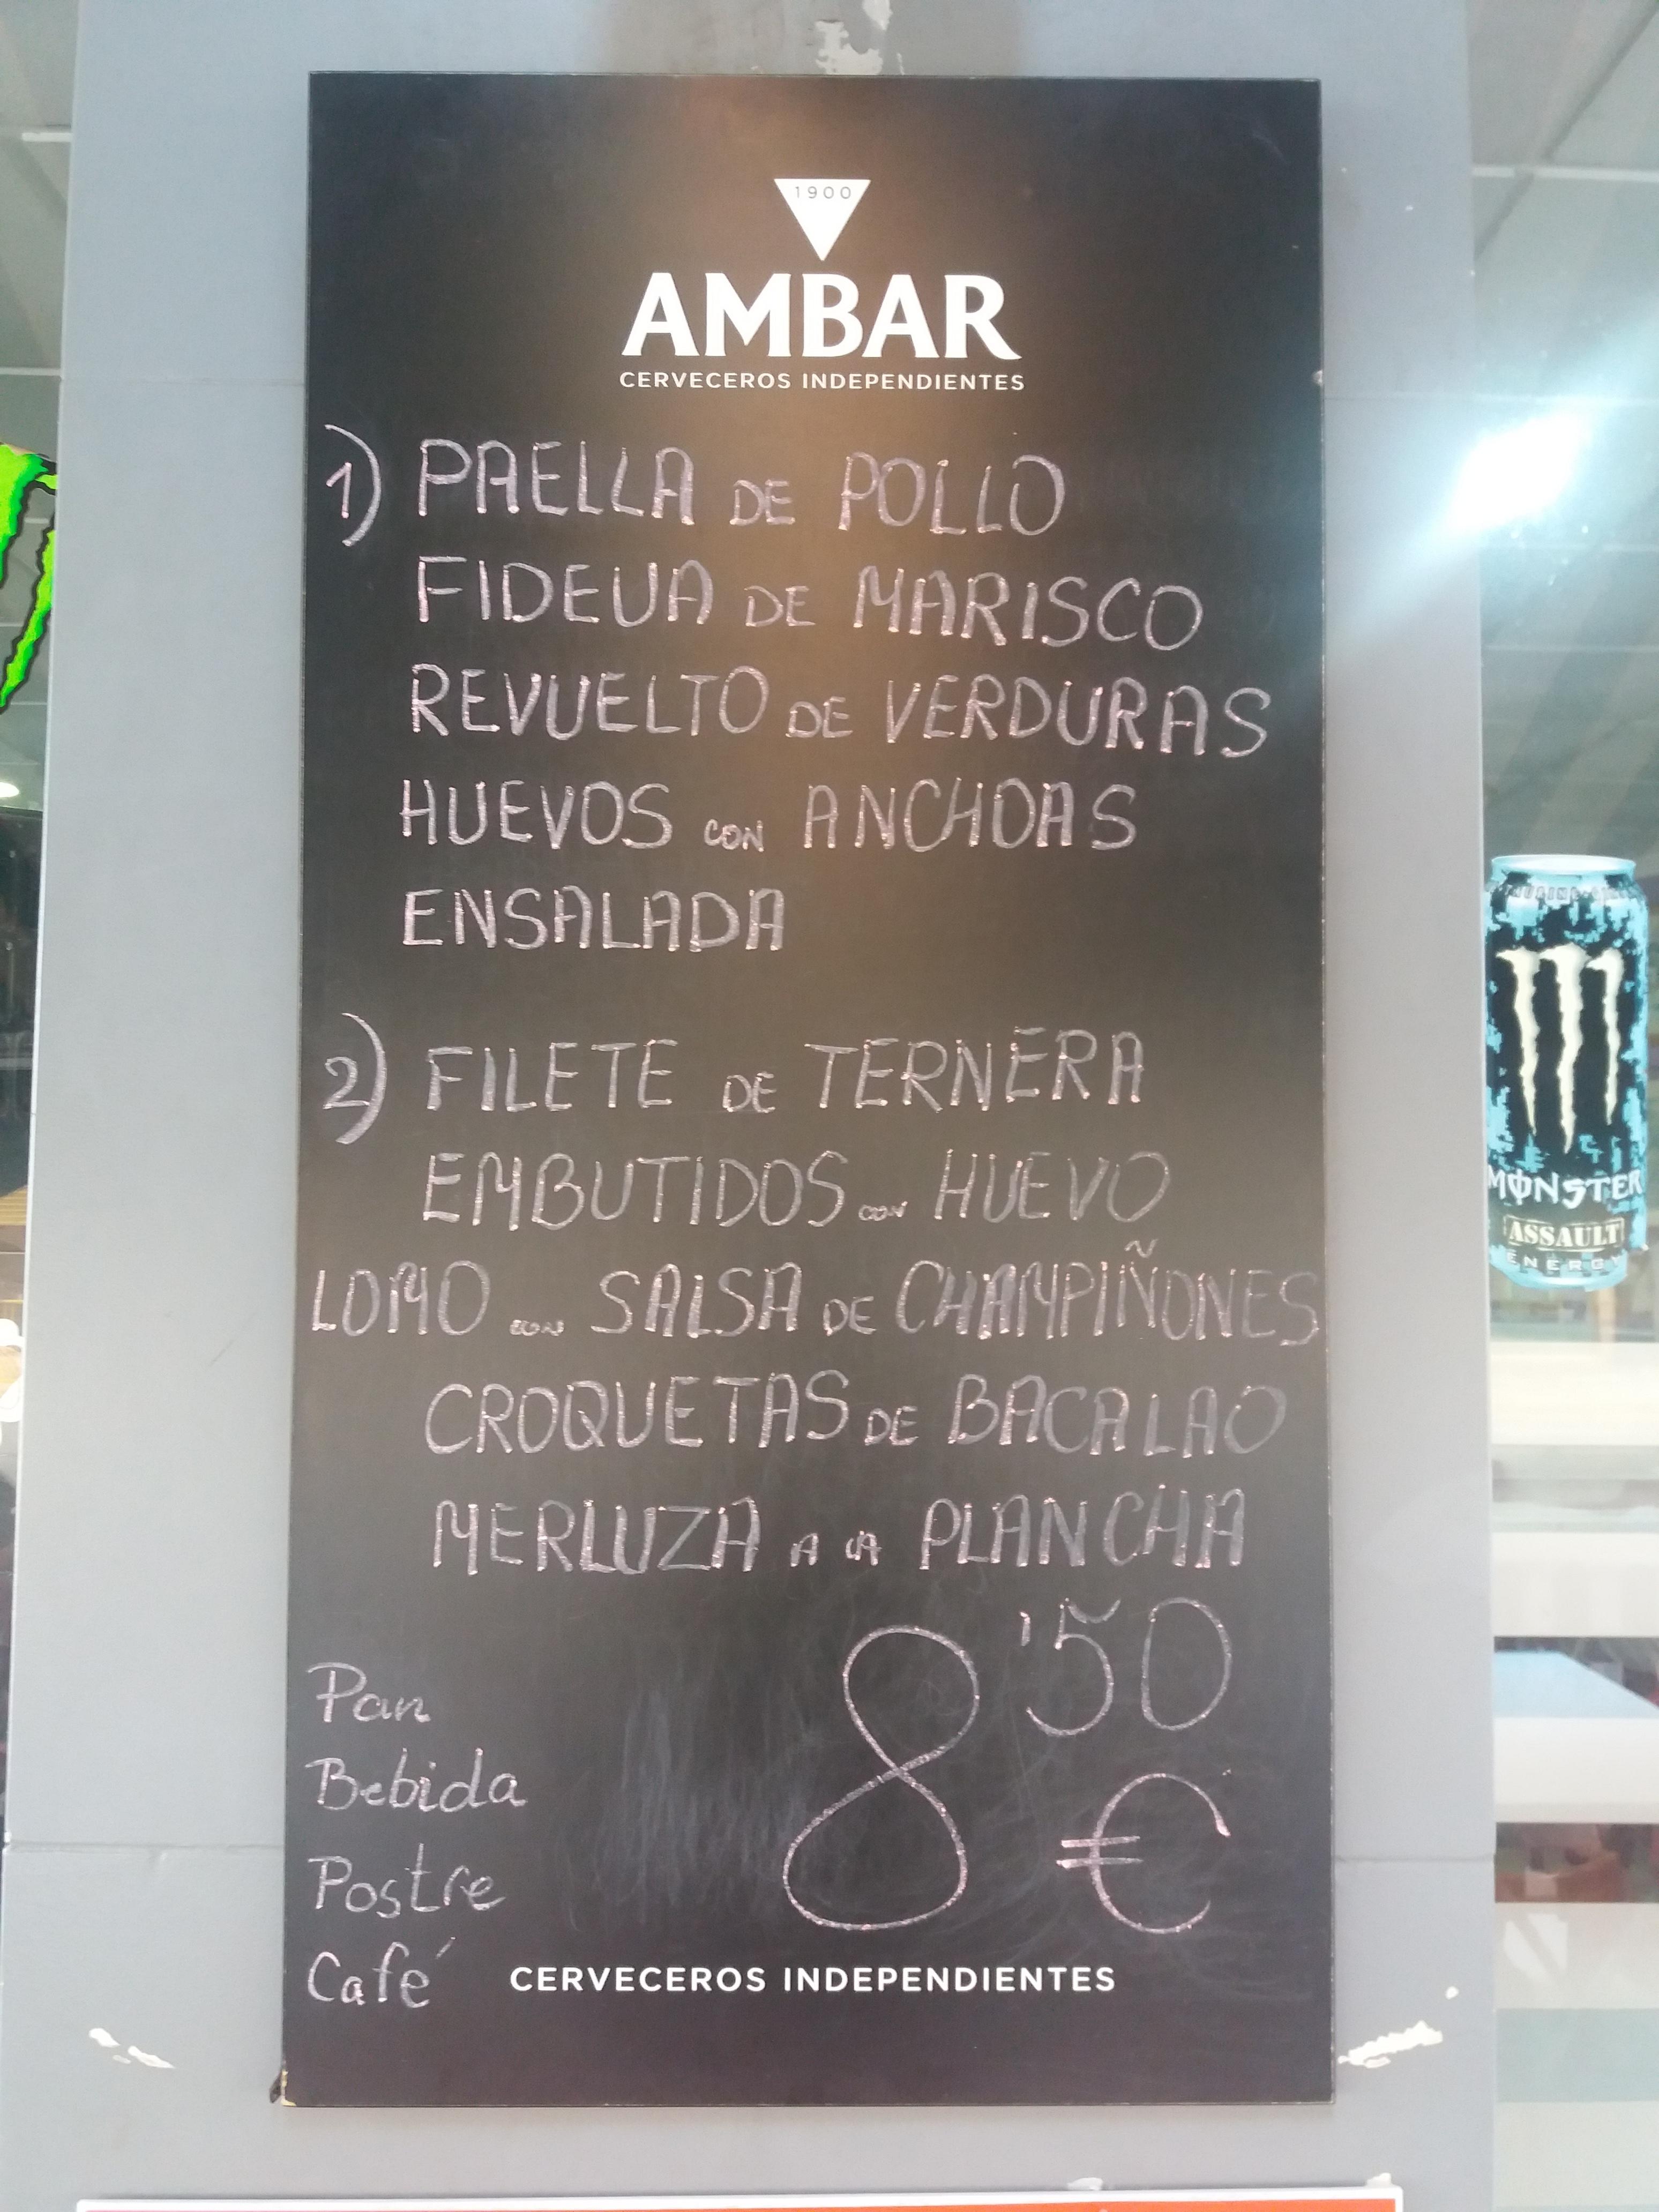 1900
AMBAR
CERVECEROS INDEPENDIENTES
1) PAELLA DE POLLO
FIDEUA DE MARISCO
REVUELTO DE VERDURAS
HUEVOS CON ANCHOAS
ENSALADA
2) FILETE DE TERNERA
EMBUTIDOS CON HUEVO
LOMO CON SALSA DE CHAMPIÑONES
CROQUETAS DE BACALAO
MERLUZA A LA PLANCHA
8'50 €
Pan
Bebida
Postre
Café
CERVECEROS INDEPENDIENTES
MONSTER
ASSAULT
ENERGY